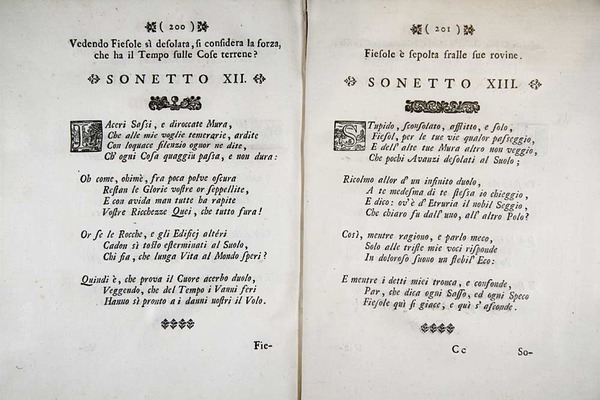 ( 200 )
Vedendo Fiesole sì desolata, si considera la forza,
che ha il Tempo sulle Cose terrene?
SONETTO XII.
LAceri Sassi, e diroccate Mura,
Che alle mie voglie temerarie, ardite
Con loquace silenzio ognor ne dite,
Ch' ogni Cosa quaggiù passa, e non dura:
Oh come, ohimè, fra poca polve oscura
Restan le Glorie vostre or seppellite,
E con avida man tutte ha rapite
Vostre Ricchezze Quei, che tutto fura!
Or se le Rocche, e gli Edifici altéri
Cadon sì tosto esterminati al Suolo,
Chi fia, che lunga Vita al Mondo speri?
Quindi è, che prova il Cuore acerbo duolo,
Veggendo, che del Tempo i Vanni feri
Hanno sì pronto a i danni nostri il Volo.
Fie-
( 201 )
Fiesole è sepolta fralle sue rovine.
SONETTO XIII.
STupido, sconsolato, afflitto, e solo,
Fiesol, per le tue vie qualor passeggio,
E dell' alte tue Mura altro non veggio,
Che pochi Avanzi desolati al Suolo;
Ricolmo allor d' un infinito duolo,
A te medesma di te stessa io chieggio,
E dico: ov' è d' Etruria il nobil Seggio,
Che chiaro fu dall' uno, all' altro Polo?
Così, mentre ragiono, e parlo meco,
Solo alle triste mie voci risponde
In doloroso suono un flebil' Eco:
E mentre i detti miei tronca, e confonde,
Par, che dica ogni Sasso, ed ogni Speco
Fiesole quì si giace, e quì s' asconde.
Cc
So-